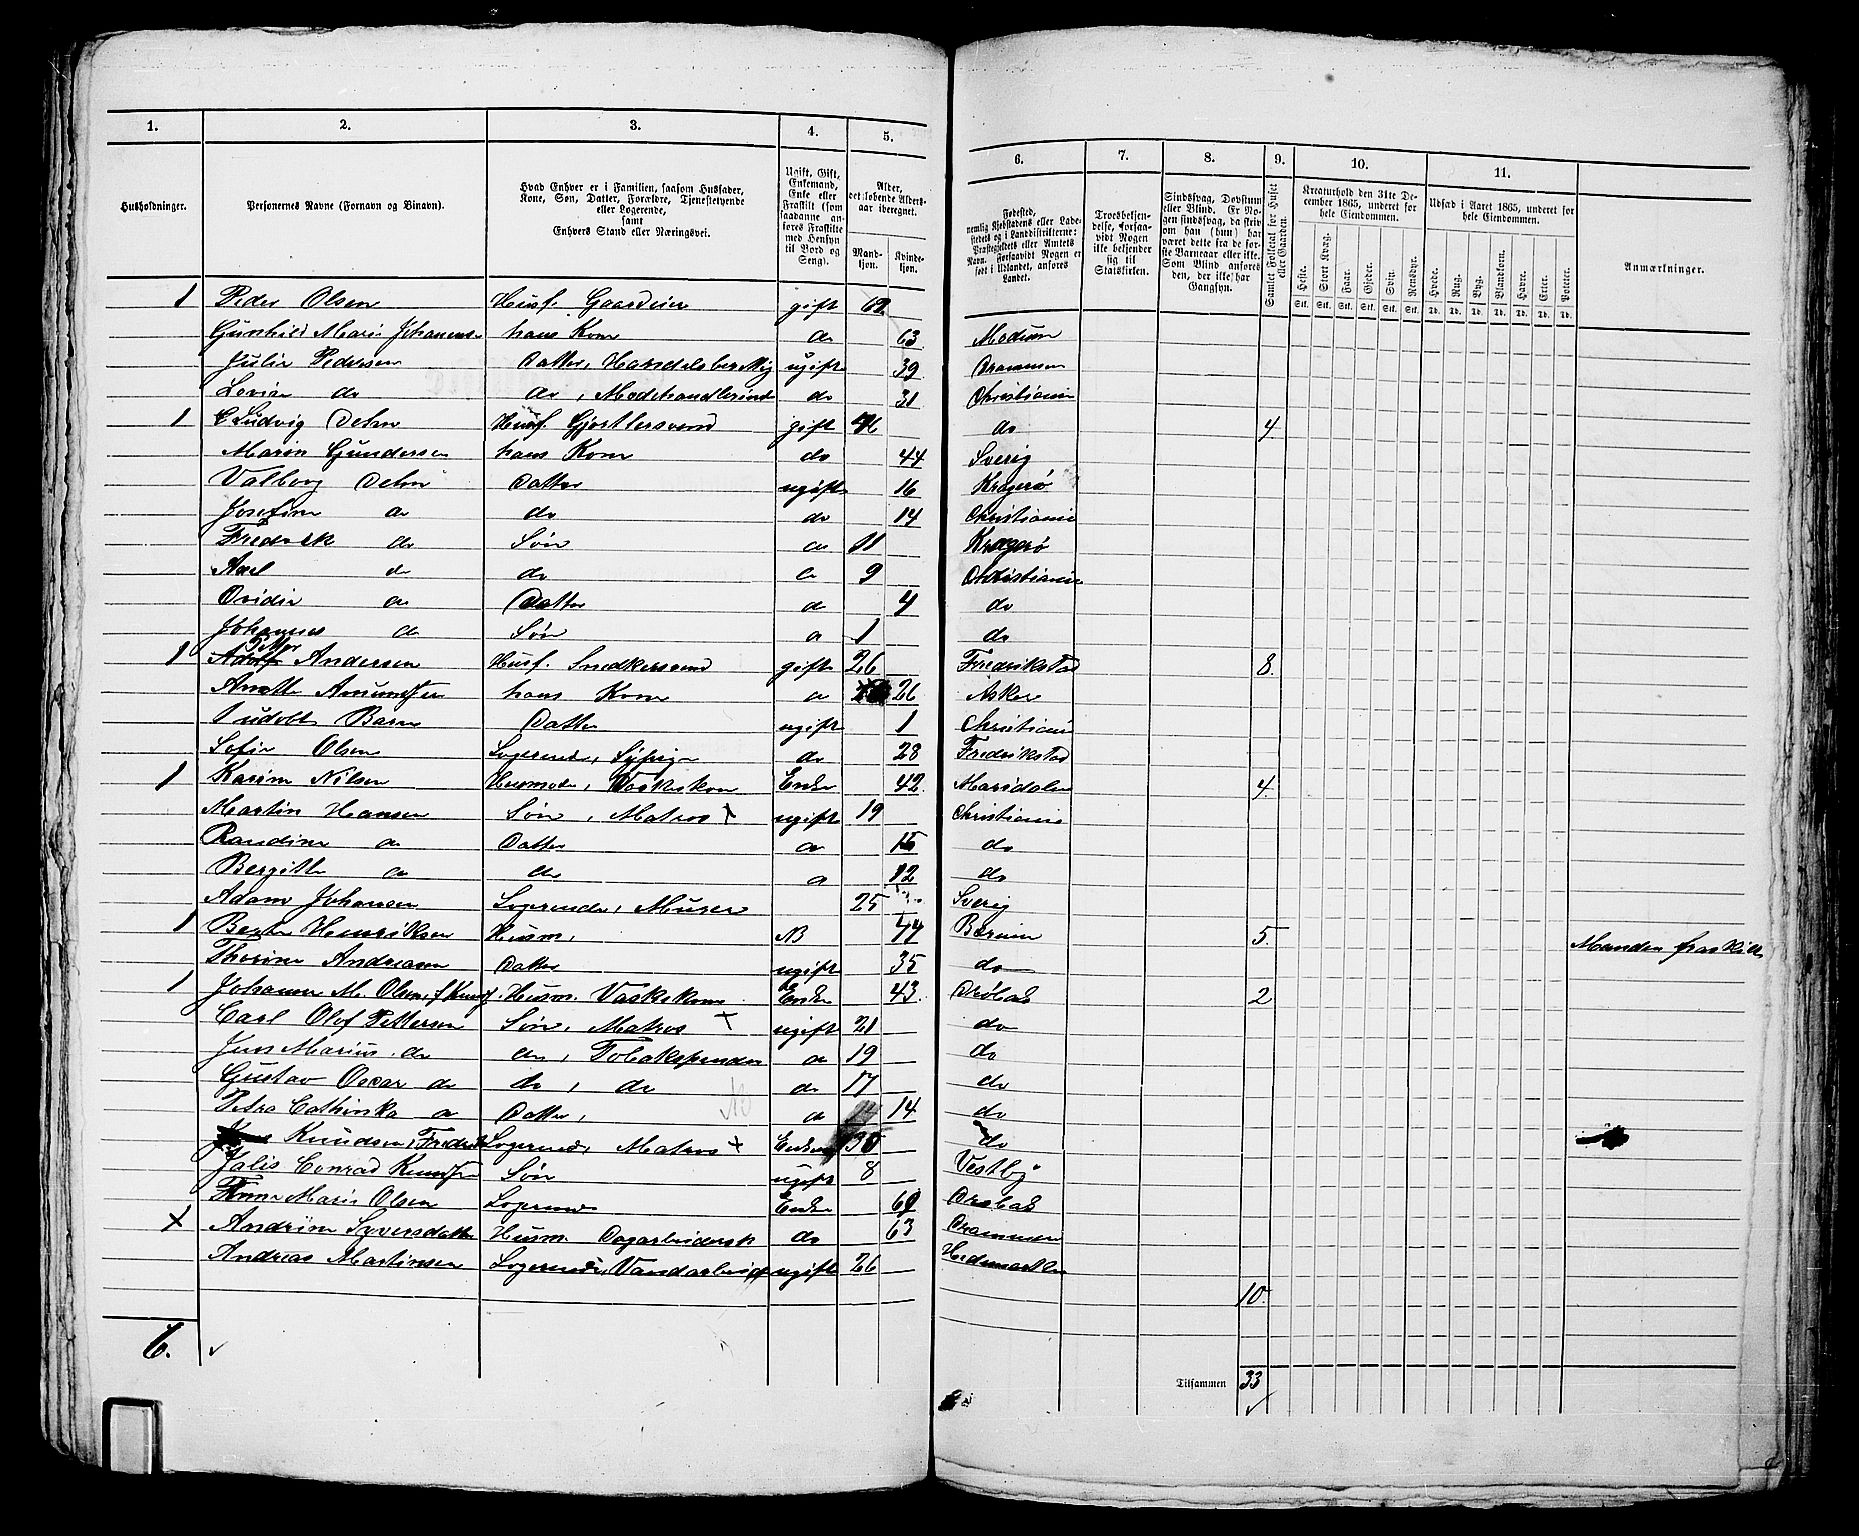 1. 2. 3. 4. 5.
Husholdninger. Personernes Navne (Fornavn og Binavn). Hvad Enhver er i Familien, saasom Husfader, Kone, Søn, Datter, Forældre, Tjenestetyende eller Logerende, samt Enhvers Stand eller Næringsvei. Ugift, Gift, Enkemand, Enke eller Fraskilt (som saadanne anføres Fraskilte med Hensyn til Bord og Seng). Alder, det løbende Aldersaar iberegnet. Mandkjøn. Kvindekjøn.
6. 7. 8. 9. 10. 11.
Fødested, nemlig Kjøbstadens eller Ladestedets og i Landdistrikterne: Præstegjeldets eller Amtets Navn. Forsaavidt Nogen er født i Udlandet, anføres Landet. Troesbekjendelse, forsaavidt Nogen ikke bekjender sig til Statskirken. Sindssvag, Døvstum eller Blind. Er Nogen sindssvag, da skrives om han (hun) har været dette fra de første Barneaar eller ikke. Som Blind anføres den, der ikke har Gangsyn. Samlet Folketal for Huset eller Gaarden. Kreaturhold den 31te December 1865, underet for hele Eiendommen. Udsæd i Aaret 1865, underet for hele Eiendommen. Anmærkninger.
Heste. Stort Kvæg. Faar. Gjeder. Svin. Rensdyr. Hvede. Rug. Byg. Blandkorn. Havre. Erter. Poteter.
Stk. Stk. Stk. Stk. Stk. Stk. Td. Td. Td. Td. Td. Td. Td.
1 Peder Olsen Husf. Gaardeier gift 62
Gunhild Marie Johannesen hans Kone do 63 Modum
Julie Pedersen Datter, Handelsberettig ugift 39 Drammen
Lovise do do, Modehandlerinde do 31 Christiania
1 C Ludvig Dehn Husf. Gjørtlersvend gift 46 do 4
Maren Gundersen hans Kone do 44 Sverig
Valborg Dehn Datter ugift 16 Kragerø
Josefine do do do 14 Christiania
Fredrik do Søn do 11 Kragerø
Axel do do do 9 Christiania
Ovidia do Datter do 4 do
Johannes do Søn do 1 do
1 Adolf Peter Andersen Husf. Snedkersvend gift 26 Fredrikstad 8.
Anette Amundsen hans Kone do 26 Asker
Datter ugift 1 Christiania
Sofie Olsen Logerende, Sypige do 28 Fredrikstad
1 Karine Nilsen Husmoder, Vaskekone Enke 42 Maridalen 4.
Martin Hansen Søn, Matros X ugift 19 Christiania
Randine do Datter do 15 do
Bergitte do do do 12 do
Adam Johansen Logerende, Murer 25 Sverig
1 Henriksen Husm. NB 77 Bærum 5. Manden fraskilt
Thorine Andreasen Datter ugift 35 do
1 Johanne M. Olsen, f Knud. Husm. Vaskekone Enke 43 Drøbak 2
Carl Olof Pettersen Søn, Matros X ugift 21 do
Jens Marius do do, Tobakspinder do 19 do
Gustav Oscar do do, do do 17 do
Petra Cathinka do Datter, do 14 do
Knudsen, Fredrik Logerende, Matros X Enkem 35 do
Julis Conrad Knudsen Søn ugift 8 Vestby
Anne Marie Olsen Logerende Enke 69 Drøbak
X Andrine Syversdatter Husm. Dagarbeidersk do 63 Drammen
Andreas Martinsen Logerende, Vandarbeid ugift 26 Hedemarken
10.
6.
Tilsammen 33